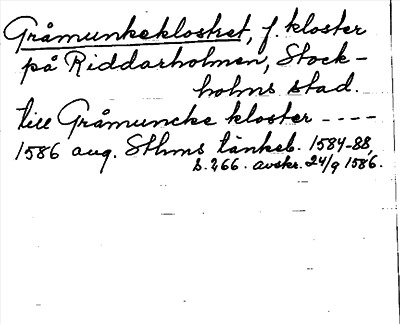 Gråmunkeklostret, f. kloster
på Riddarholmen, Stock-
holms stad.
till Gråmuncke kloster ----
1586 aug. Sthms tänkeb. 1584-88,
s. 266. avskr. 24/9 1586.